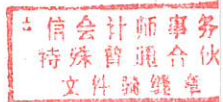 立信会计师事务
特殊普通合伙
文件骑缝章